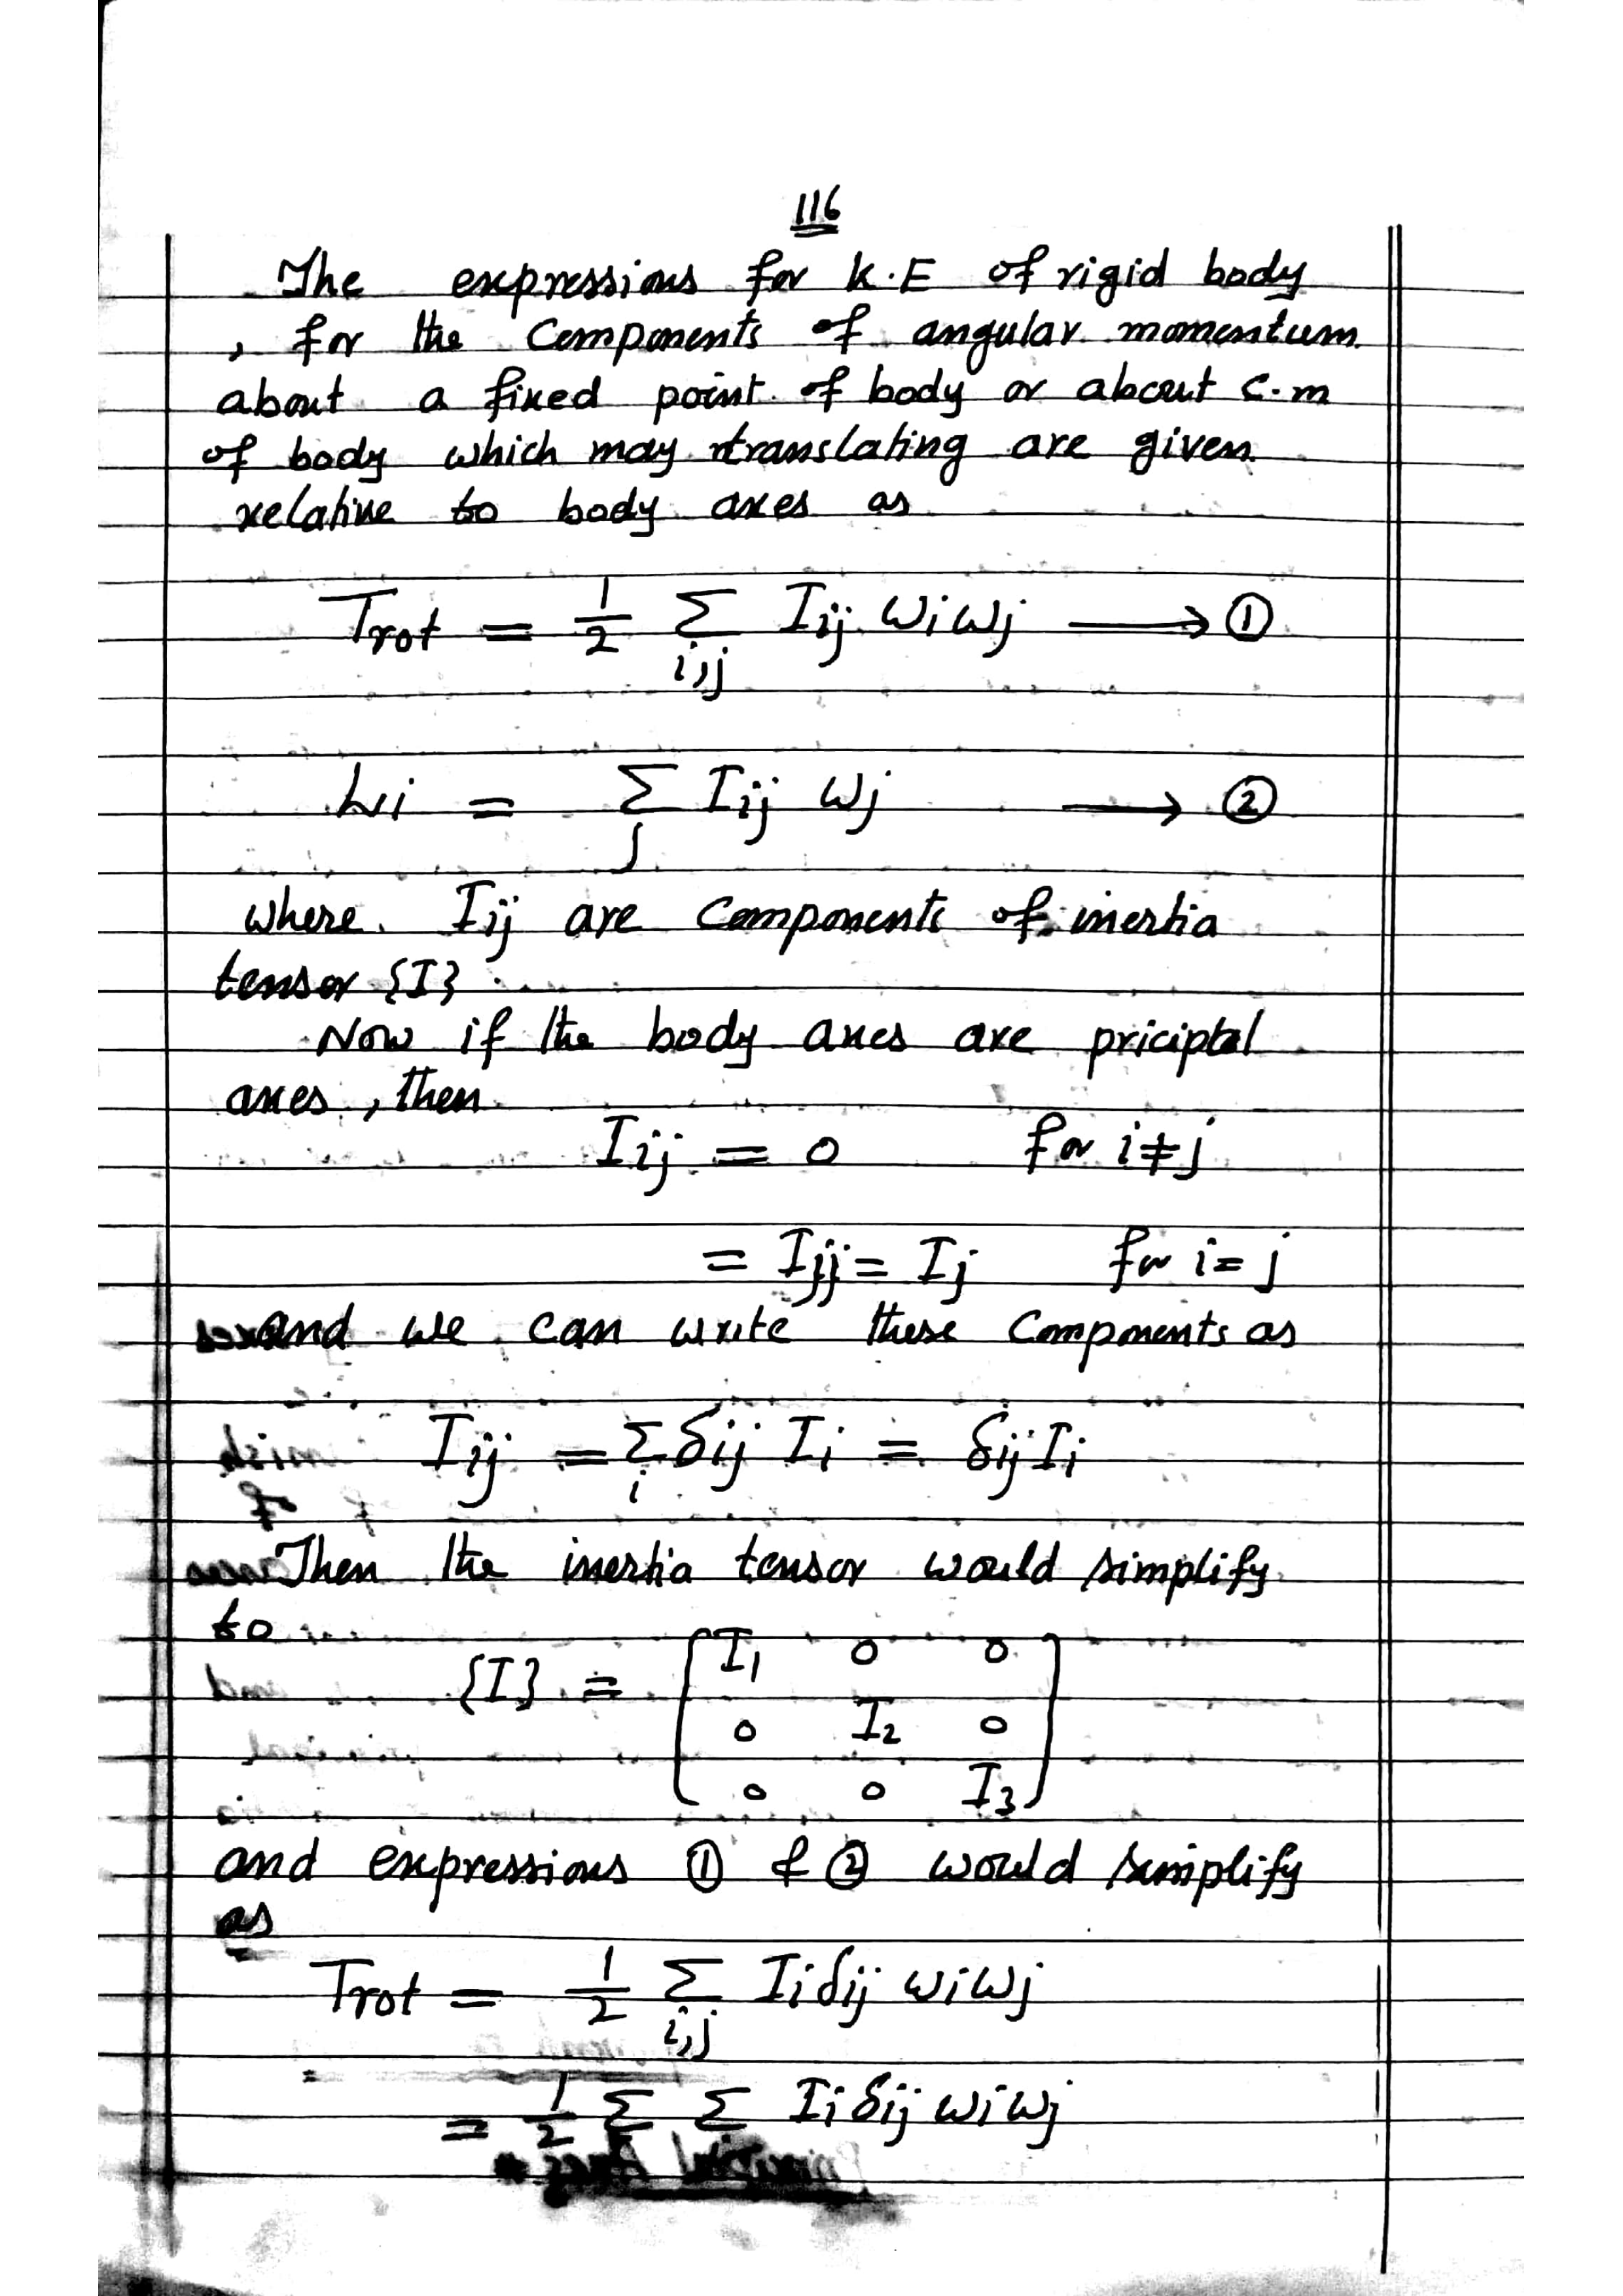 116
The expressions for K.E of rigid body
, for the Components of angular momentum
about a fixed point of body or about C.m
of body which may translating are given
relative to body axes as
Trot = 1/2 Σ i,j Iij ωiωj ⟶ ①
Li = Σ j Iij ωj ⟶ ②
where Iij are Components of inertia
tensor {I}
Now if the body axes are priciptal
axes, then
Iij = 0 for i≠j
= Ijj = Ij for i=j
and we can write these Components as
Iij = Σ i δij Ii = δij Ii
Then the inertia tensor would simplify
to
{I} = [I1 0 0
0 I2 0
0 0 I3]
and expressions ① & ② would simplify
as
Trot = 1/2 Σ i,j Ii δij ωiωj
= 1/2 Σ Σ Ii δij ωiωj